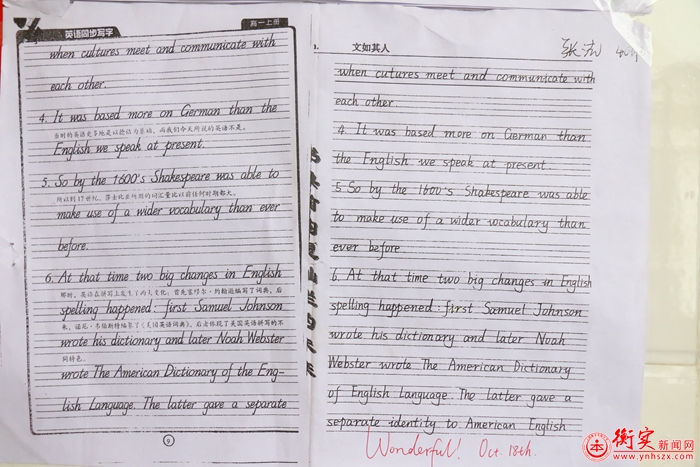 英语同步写字
高一上册
when cultures meet and communicate with
each other.
4. It was based more on German than the
当时的英语更多地是以德语为基础，而我们今天所说的英语不是。
English we speak at present.
5. So by the 1600's Shakespeare was able to
所以到17世纪，莎士比亚所用的词汇量比以前任何时期都大。
make use of a wider vocabulary than ever
before.
6. At that time two big changes in English
那时，英语在拼写上发生了两大变化，首先塞缪尔·约翰逊编写了词典，后
spelling happened: first Samuel Johnson
来，诺厄·韦伯斯特编纂了《美国英语词典》，后者体现了美国英语拼写的不
wrote his dictionary and later Noah Webster
同特色。
wrote The American Dictionary of the Eng-
lish Language. The latter gave a separate
9
文如其人
when cutures meet and communicate with
each other.
4. It was based more on German than
the English we speak at present.
5. So by the 1600's Shakespeare was able
to make use of a wider vocabulary than
ever before
6. At that time two big changes in English
spelling happened: first Samuel Johnson
wrote his dictionary and later Noah
Webster wrote The American Dictionary
of English Language. The latter gave a
separate identity to American English
Wonderful! Oct. 18th.
衡实新闻网
www.ynhszx.com